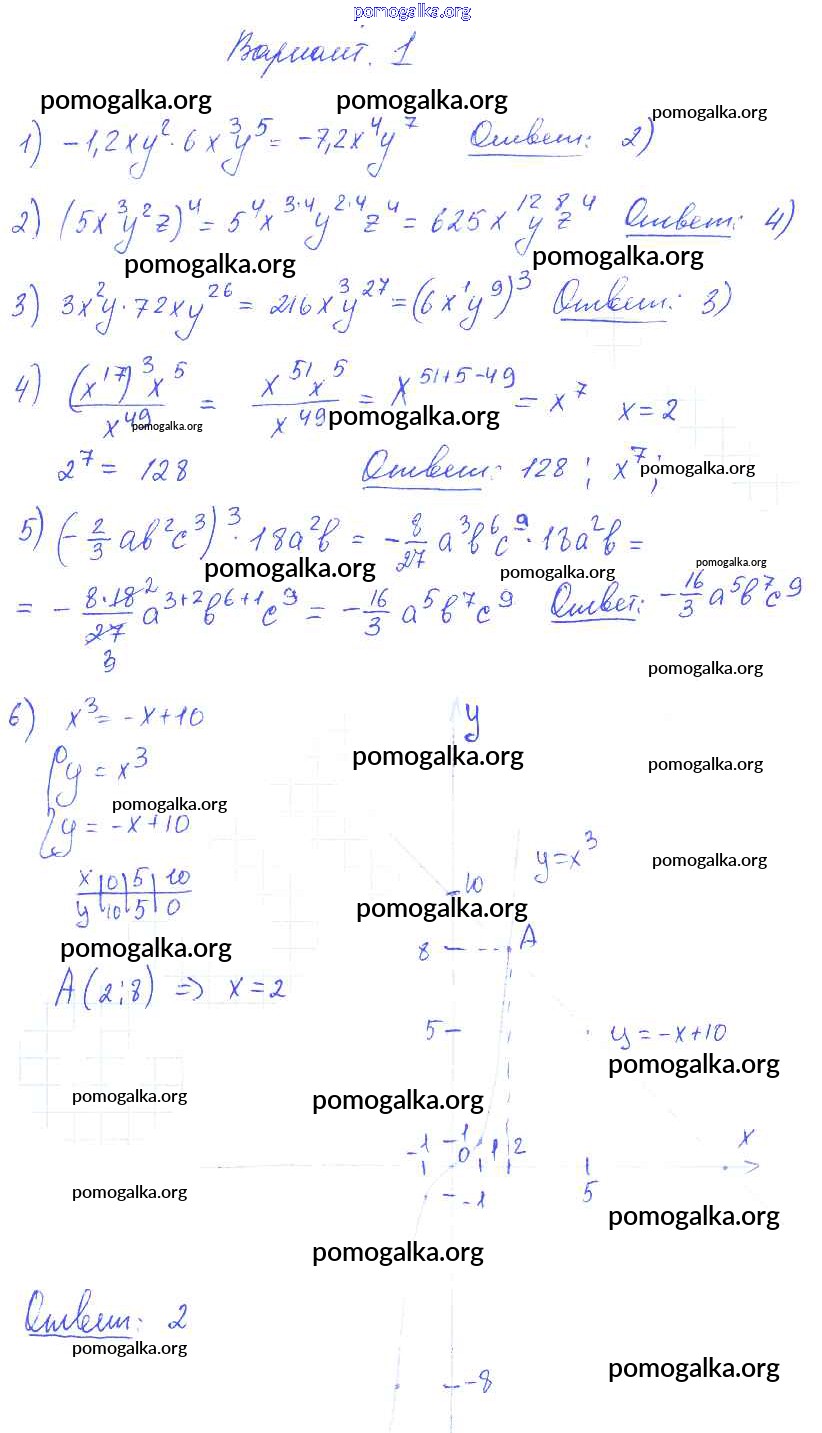 pomogalka.org
Вариант. 1
pomogalka.org pomogalka.org pomogalka.org
1) -1,2xy²·6x³y⁵ = -7,2x⁴y⁷ Ответ: 2)
2) (5x³y²z)⁴ = 5⁴x³·⁴y²·⁴z⁴ = 625x¹²y⁸z⁴ Ответ: 4)
pomogalka.org pomogalka.org
3) 3x²y·72xy²⁶ = 216x³y²⁷ = (6x¹y⁹)³ Ответ: 3)
4) (x¹⁷)³x⁵/x⁴⁹ = x⁵¹x⁵/x⁴⁹ = x⁵¹⁺⁵⁻⁴⁹ = x⁷ x = 2
pomogalka.org pomogalka.org
2⁷ = 128 Ответ: 128 ; x⁷;
pomogalka.org
5) (-2/3 ab²c³)³·18a²b = -8/27 a³b⁶c⁹·18a²b =
pomogalka.org pomogalka.org pomogalka.org
= - 8·18²/27 3 a³⁺²b⁶⁺¹c⁹ = -16/3 a⁵b⁷c⁹ Ответ: -16/3 a⁵b⁷c⁹
pomogalka.org
6) x³ = -x+10
y
pomogalka.org pomogalka.org
{y = x³
pomogalka.org
y = -x+10
y=x³
pomogalka.org
x 0 5 10
10
y 10 5 0
pomogalka.org
pomogalka.org
8 A
A(2;8) => x = 2
5
y = -x+10
pomogalka.org
pomogalka.org pomogalka.org
-1 1 0 1 2 x
pomogalka.org
-1 5
pomogalka.org
pomogalka.org
Ответ: 2
pomogalka.org
pomogalka.org
-8